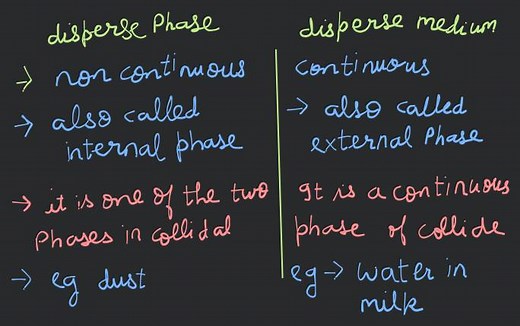 disperse Phase
→ non continuous
→ also called
internal phase
→ it is one of the two
Phases in collidal
→ eg dust
disperse medium
continuous
→ also called
external Phase
It is a continuous
phase of collide
eg → water in
milk